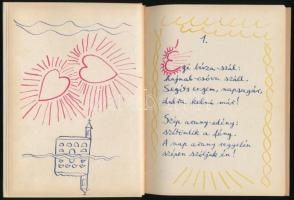 1.
Égi búza-szál:
hajnal-csóva száll.
Segíts engem, napsugár,
dalra kelni már!
Szép arany-edény:
szétömlik a fény.
A nap arany reggelén
szépen szóljak én!